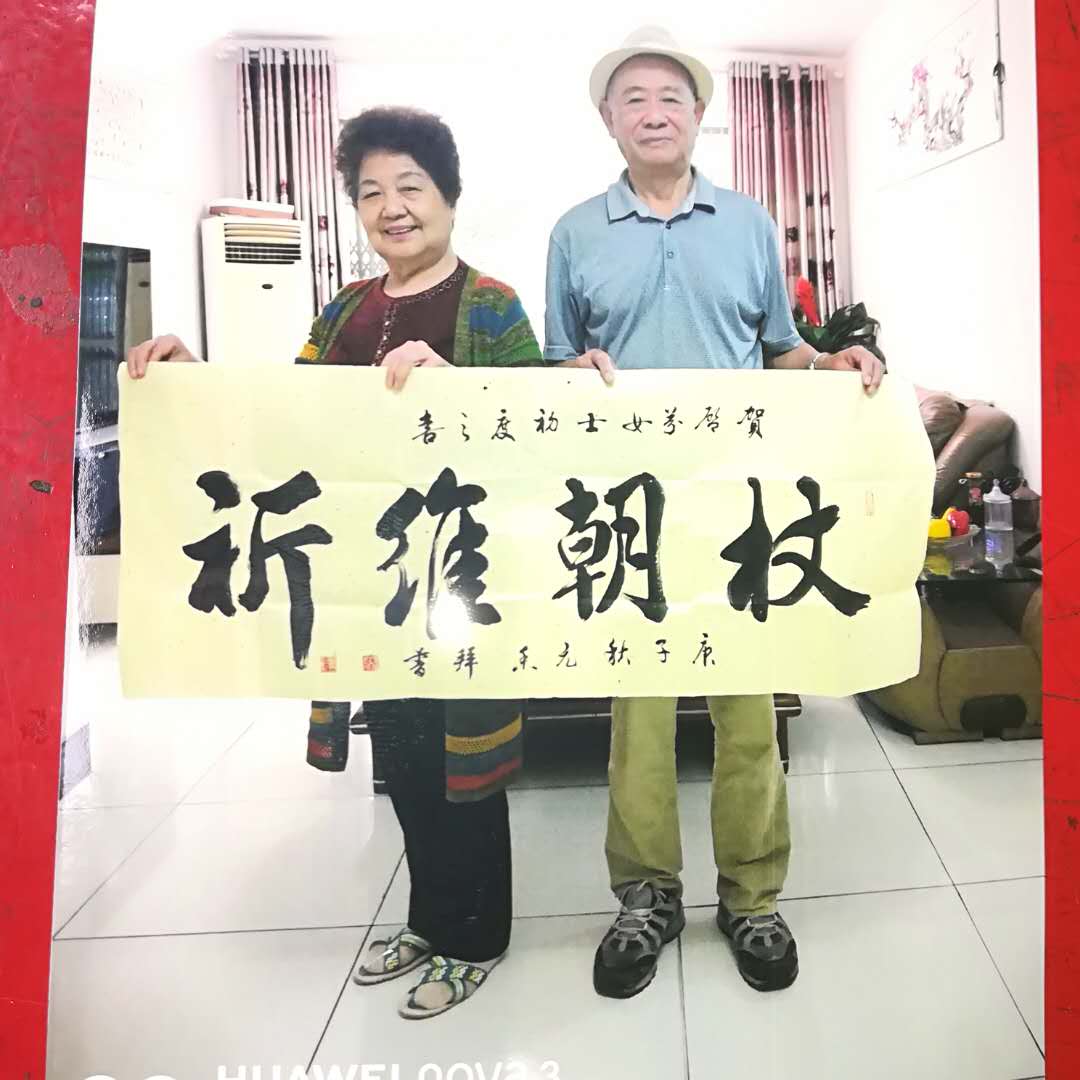 賀啓芬女士初度之喜
杖朝維祈
庚子秋元拜書
HUAWEI nova 3